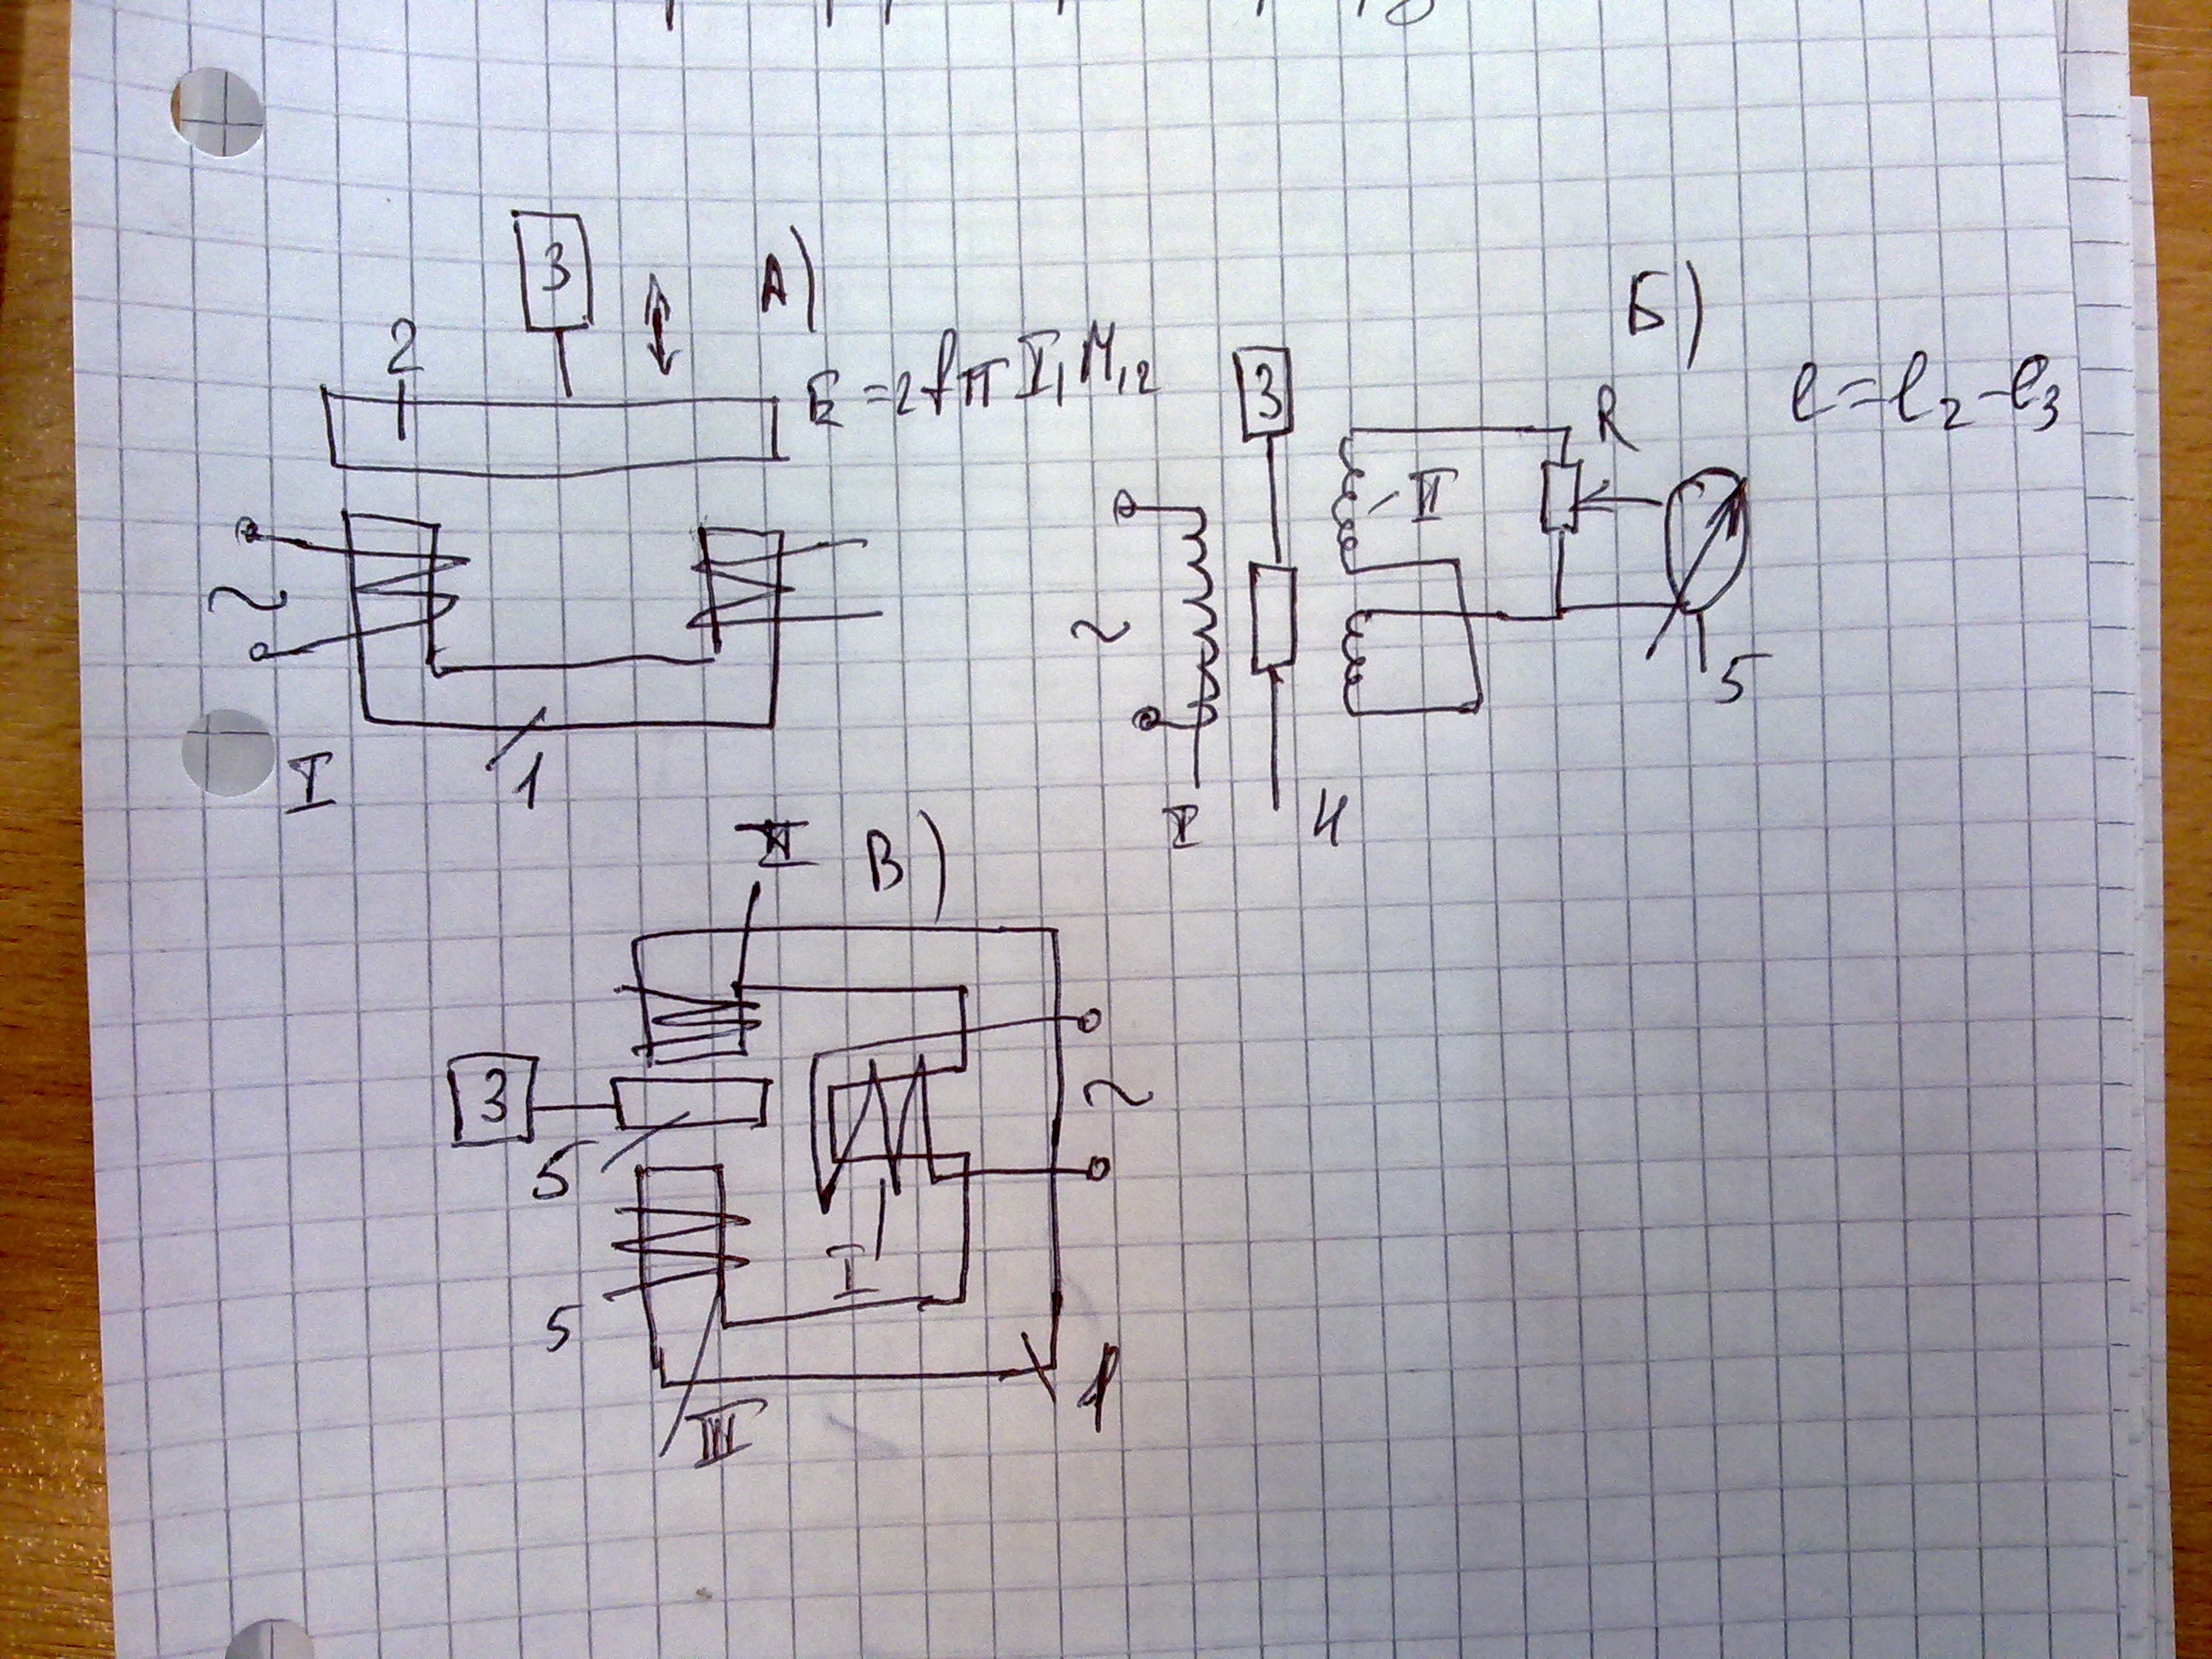 3
А)
2
E = 2fπ I₁ M₁₂
~
I
1
Б)
e = e₂ - e₃
3
R
II
~
5
I
4
II
В)
3
5
~
I
5
III
1